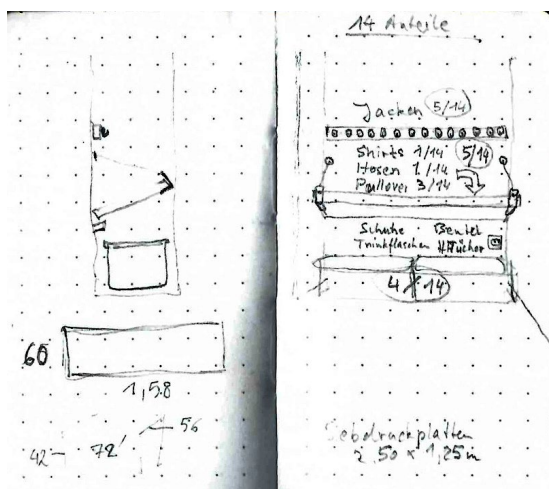 60
1,58
56
42
72
14 Anteile
Jacken 5/14
Shirts 1/14 5/14
Hosen 1/14
Pullover 3/14
Schuhe Beutel
Trinkflaschen
4/14
Siebdruckplatten
2,50 x 1,25m